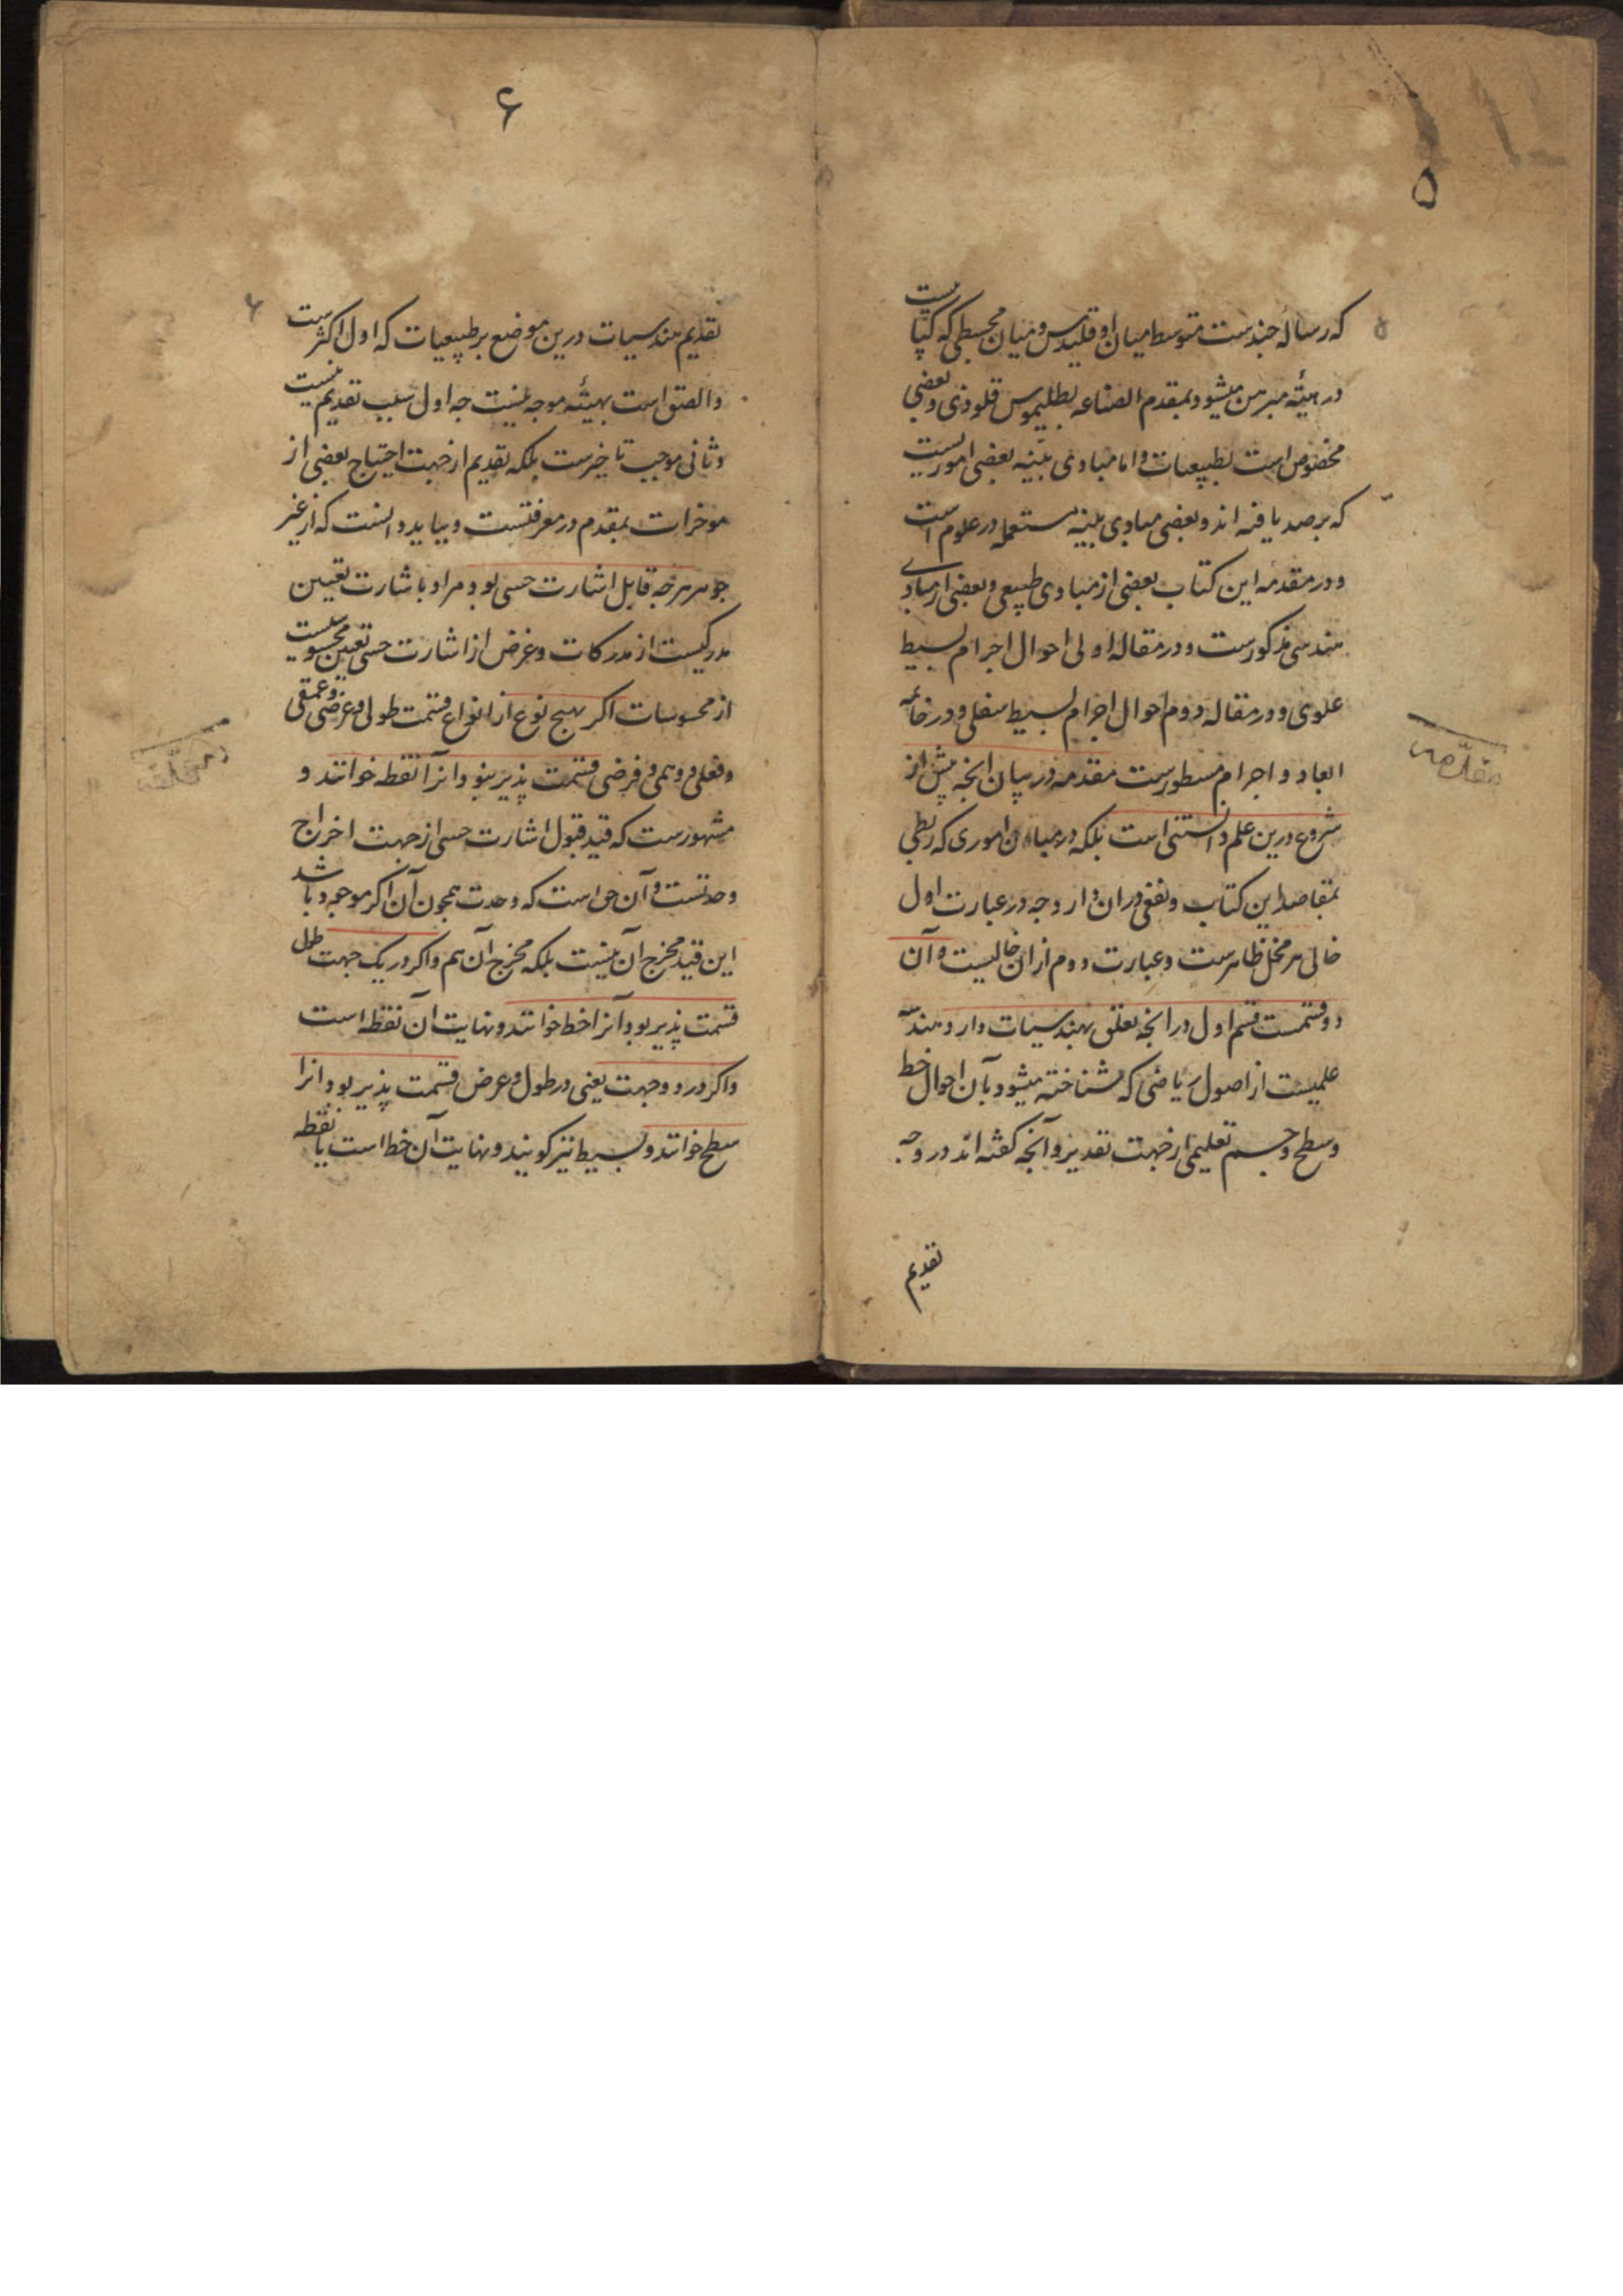 ۵
که رساله چندست متوسط میان اوقلیدس و میان مجسطی که کتابیست
در هیئة مبرهن میشود بمقدم الصناعه بطلیموس قلوذی و بعضی
مخصوص است بطبیعیات و اما مبادی بینه بعضی امور یست
که برصد یافته اند و بعضی مبادی بینه مستعمله در علوم است
و در مقدمه این کتاب بعضی از مبادی طبیعی و بعضی از مبادی
هندسی مذکورست و در مقاله اولی احوال اجرام بسیط
علوی و در مقاله دوم احوال اجرام بسیط سفلی و در خاتمه
ابعاد و اجرام مسطورست مقدمه در بیان انجه پیش از
شروع درین علم دانستنی است بلکه در میان اموری که ربطی
بمقاصد این کتاب و نفعی دران دارد چه در عبارت اول
خالی هر مخل ظاهرست و عبارت دوم ازان خالیست و آن
دو قسمست قسم اول در انجه تعلق بهندسیات دارد و هندسه
علمیست از اصول ریاضی که شناخته میشود بآن احوال خط
و سطح و جسم تعلیمی از جهت تقدیر و آنجه گفته اند در وجه
تقدیم
مقدمه
۶
تقدیم هندسیات درین موضع بر طبیعیات که اول اکثرست
و الصق است بهیئه موجه نیست جه اول سبب تقدیم نیست
و ثانی موجب تاخیرست بلکه تقدیم از جهت احتیاج بعضی از
موخرات بمقدم در معرفتست و بباید دانست که از غیر
جوهر هرجه قابل اشارت حسی بود و مراد باشارت تعیین
مدرکیست از مدرکات و غرض از اشارت حسی تعیین محسوسیست
از محسوسات اکر بهیج نوع از انواع قسمت طولی و عرضی و عمقی
و فعلی و وهمی و فرضی قسمت پذیر نبود انرا نقطه خوانند و
مشهورست که قید قبول اشارت حسی از جهت اخراج
وحدتست و آن حق است که وحدت همجون آن اکر موجود باشد
این قید مخرج آن نیست بلکه مخرج آن هم و اکر در یک جهت طول
قسمت پذیر بود آنرا خط خوانند و نهایت آن نقطه است
و اکر در دو جهت یعنی در طول و عرض قسمت پذیر بود انرا
سطح خوانند و بسیط نیز کویند و نهایت آن خط است یا نقطه